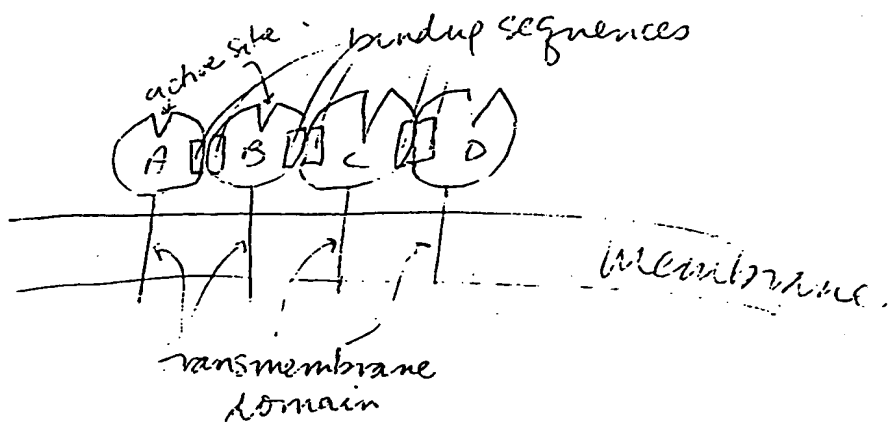 active site
binding sequences
A B C D
membrane.
transmembrane
domain